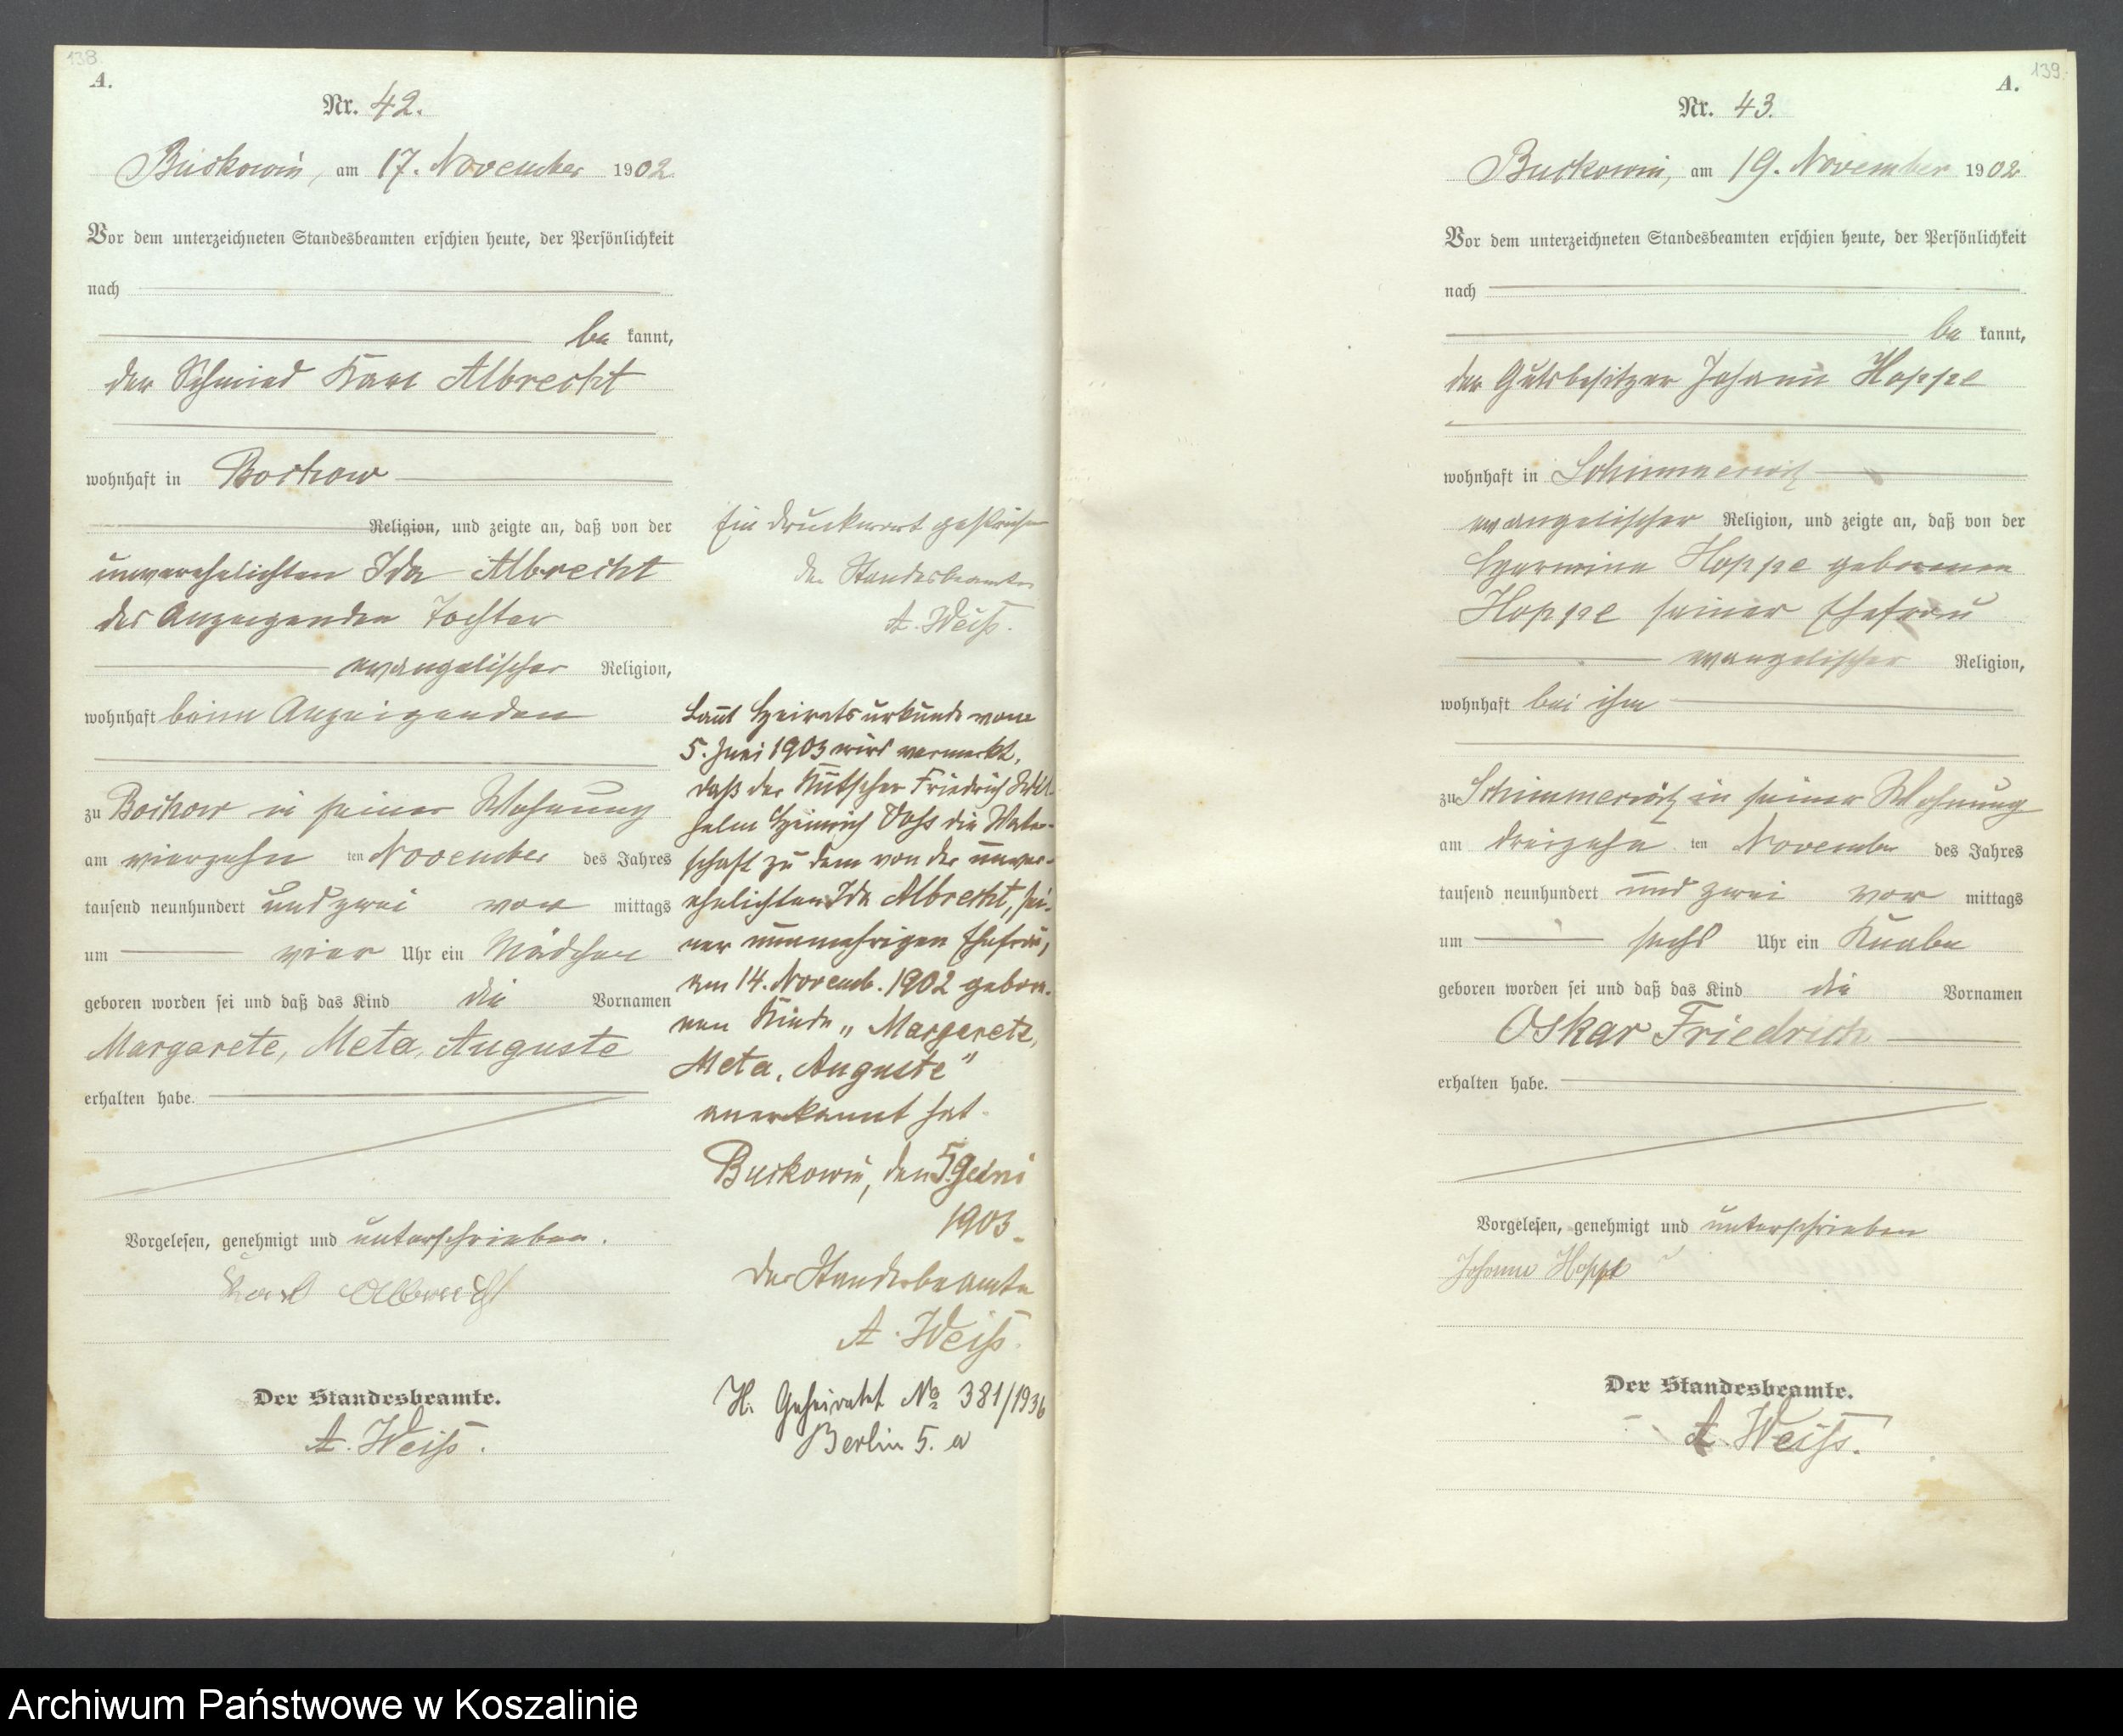 138.
A.
Nr. 42.
Buckowin, am 17. November 1902
Vor dem unterzeichneten Standesbeamten erschien heute, der Persönlichkeit
nach
be kannt,
der Schmied Karl Albrecht
wohnhaft in Bochow
Religion, und zeigte an, daß von der
unverehelichten Ida Albrecht
des Anzeigenden Tochter
evangelischer Religion,
wohnhaft beim Anzeigenden
zu Bochow in seiner Wohnung
am vierzehn ten November des Jahres
tausend neunhundert und zwei vor mittags
um vier Uhr ein Mädchen
geboren worden sei und daß das Kind die Vornamen
Margarete, Meta, Auguste
erhalten habe.
Vorgelesen, genehmigt und unterschrieben.
Karl Albrecht
Der Standesbeamte.
A. Weiß.
Ein Druckwort gestrichen
Der Standesbeamte
A. Weiß.
Laut Heiratsurkunde vom
5. Juni 1903 wird vermerkt,
daß der Kutscher Friedrich Wil-
helm Heinrich Voss die Vater-
schaft zu dem von der unver-
ehelichten Ida Albrecht, sei-
ner nunmehrigen Ehefrau,
am 14. Novemb. 1902 gebore-
nen Kinde „Margarete,
Meta, Auguste"
anerkannt hat.
Buckowin, den 5. Juni
1903.
Der Standesbeamte
A. Weiß.
H. Geheiratet No 381/1936
Berlin 5. a
139.
A.
Nr. 43.
Buckowin, am 19. November 1902
Vor dem unterzeichneten Standesbeamten erschien heute, der Persönlichkeit
nach
be kannt,
der Gutsbesitzer Johann Hoppe
wohnhaft in Schimmerwitz
evangelischer Religion, und zeigte an, daß von der
Hermine Hoppe geborenen
Hoppe seiner Ehefrau
evangelischer Religion,
wohnhaft bei ihm
zu Schimmerwitz in seiner Wohnung
am dreizehn ten November des Jahres
tausend neunhundert und zwei vor mittags
um sechs Uhr ein Knabe
geboren worden sei und daß das Kind die Vornamen
Oskar Friedrich
erhalten habe.
Vorgelesen, genehmigt und unterschrieben
Johann Hoppe
Der Standesbeamte.
A. Weiß.
Archiwum Państwowe w Koszalinie